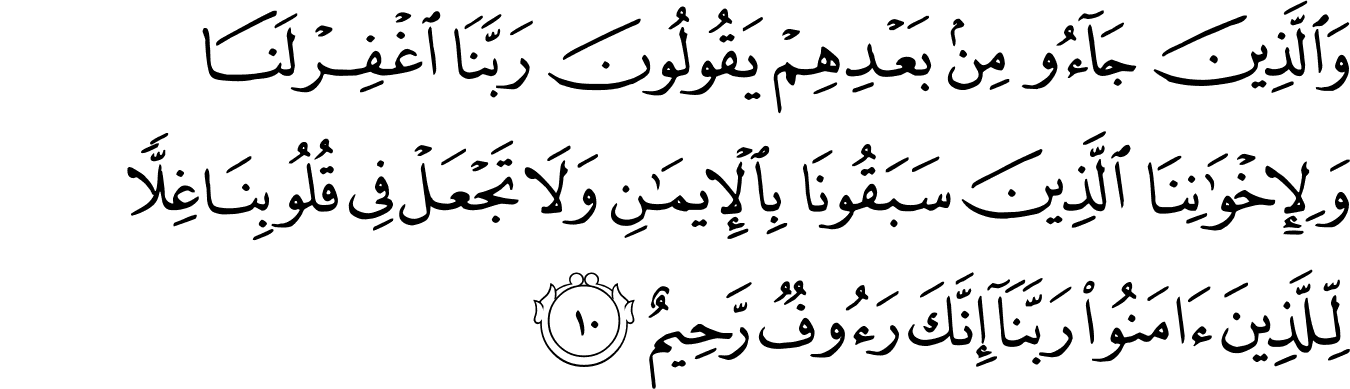 وَٱلَّذِينَ جَآءُو مِنۢ بَعْدِهِمْ يَقُولُونَ رَبَّنَا ٱغْفِرْ لَنَا
وَلِإِخْوَٰنِنَا ٱلَّذِينَ سَبَقُونَا بِٱلْإِيمَـٰنِ وَلَا تَجْعَلْ فِى قُلُوبِنَا غِلًّا
لِّلَّذِينَ ءَامَنُوا۟ رَبَّنَآ إِنَّكَ رَءُوفٌ رَّحِيمٌ ١٠